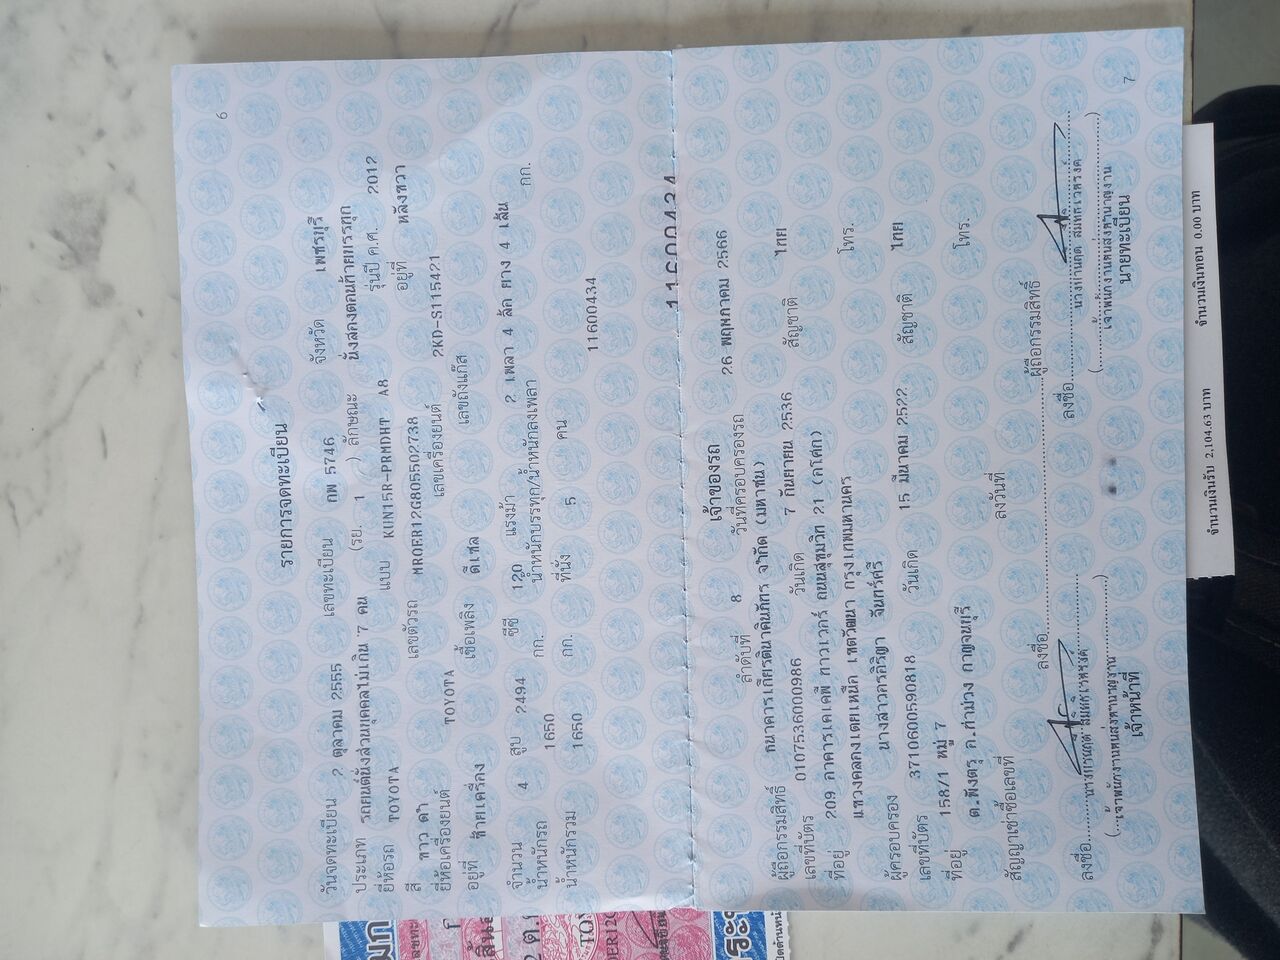 6
รายการจดทะเบียน
วันจดทะเบียน 2 ตุลาคม 2555 เลขทะเบียน กพ 5746 จังหวัด เพชรบุรี
ประเภท รถยนต์นั่งส่วนบุคคลไม่เกิน 7 คน (รย. 1 ) ลักษณะ นั่งสองตอนท้ายบรรทุก
ยี่ห้อรถ TOYOTA แบบ KUN15R-PRMDHT A8 รุ่นปี ค.ศ. 2012
สี ขาว ดำ เลขตัวรถ MR0ER12G805502738 อยู่ที่ หลังขวา
ยี่ห้อเครื่องยนต์ TOYOTA เลขเครื่องยนต์ 2KD-S115421
อยู่ที่ ซ้ายเครื่อง เชื้อเพลิง ดีเซล เลขถังแก๊ส
จำนวน 4 สูบ 2494 ซีซี 120 แรงม้า 2 เพลา 4 ล้อ ยาง 4 เส้น
น้ำหนักรถ 1650 กก. น้ำหนักบรรทุก/น้ำหนักลงเพลา กก.
น้ำหนักรวม 1650 กก. ที่นั่ง 5 คน
11600434
11600434
เจ้าของรถ
ลำดับที่ 8 วันที่ครอบครองรถ 26 พฤษภาคม 2566
ผู้ถือกรรมสิทธิ์ ธนาคารเกียรตินาคินภัทร จำกัด (มหาชน)
เลขที่บัตร 0107536000986 วันเกิด 7 กันยายน 2536 สัญชาติ ไทย
ที่อยู่ 209 อาคารเคเคพี ทาวเวอร์ ถนนสุขุมวิท 21 (อโศก)
แขวงคลองเตยเหนือ เขตวัฒนา กรุงเทพมหานคร โทร.
ผู้ครอบครอง นางสาวอรอิริญา จันทร์ศรี
เลขที่บัตร 3710600590818 วันเกิด 15 มีนาคม 2522 สัญชาติ ไทย
ที่อยู่ 158/1 หมู่ 7
ต.พังตรุ อ.ท่าม่วง กาญจนบุรี โทร.
สัญญาเช่าซื้อเลขที่ ลงวันที่
ลงชื่อ ผู้ถือกรรมสิทธิ์
ลงชื่อ ลงชื่อ
เจ้าพนักงานขนส่งชำนาญงาน เจ้าพนักงานขนส่งชำนาญงาน
เจ้าหน้าที่ นายทะเบียน
7
จำนวนเงินรับ 2,104.63 บาท จำนวนเงินทอน 0.00 บาท